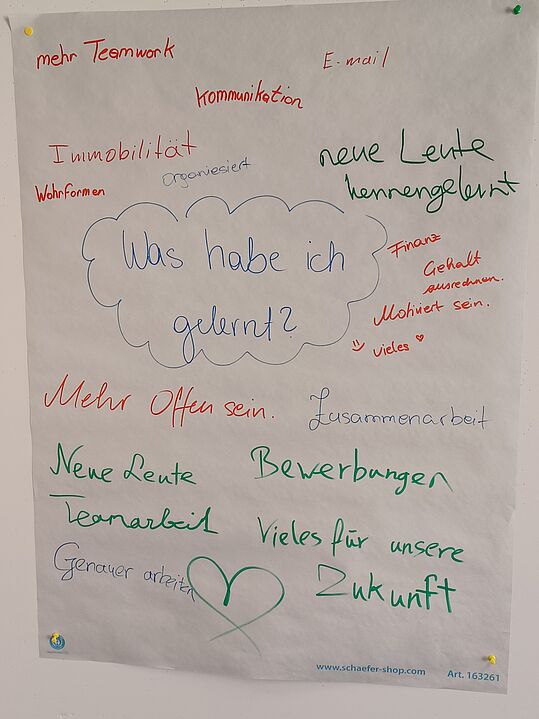 mehr Teamwork
E-mail
Kommunikation
Immobilität
organiesiert
neue Leute
kennengelernt
Wohnformen
Was habe ich
gelernt?
Finanz
Gehalt
ausrechnen.
Motiviert sein.
vieles
Mehr Offen sein.
Zusammenarbeit
Neue Leute
Bewerbungen
Teamarbeit
Vieles für unsere
Zukunft
Genauer arbeiten
www.schaefer-shop.com Art. 163261